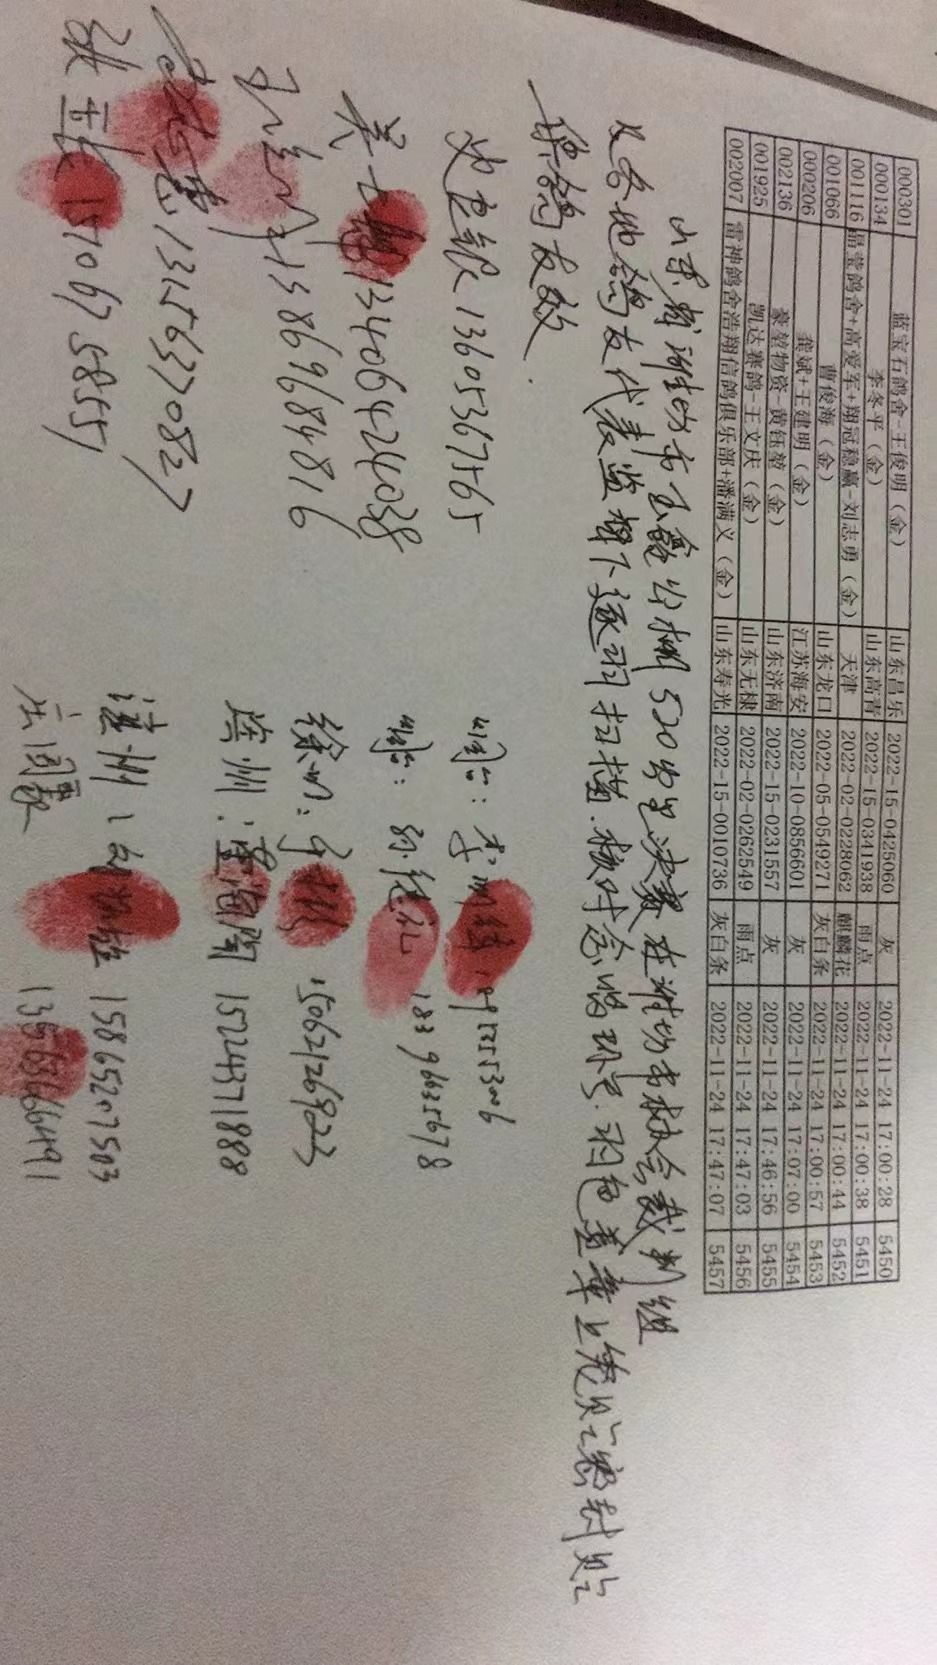 000301 蓝宝石鸽舍-王俊明（金） 山东昌乐 2022-15-0425060 灰 2022-11-24 17:00:28 5450
000134 李冬平（金） 山东高青 2022-15-0341938 雨点 2022-11-24 17:00:38 5451
001116 晶莹鸽舍+高爱军+翔冠稳赢-刘志勇（金） 天津 2022-02-0228062 麒麟花 2022-11-24 17:00:44 5452
001066 曹俊海（金） 山东龙口 2022-05-0549271 灰白条 2022-11-24 17:00:57 5453
000206 龚斌+王建明（金） 江苏海安 2022-10-0856601 灰 2022-11-24 17:07:00 5454
002136 豪堃物资-黄钰堃（金） 山东济南 2022-15-0231557 灰 2022-11-24 17:46:56 5455
001925 凯达赛鸽-王文庆（金） 山东无棣 2022-02-0262549 雨点 2022-11-24 17:47:03 5456
002007 雷神鸽舍浩翔信鸽俱乐部+潘满义（金） 山东寿光 2022-15-0010736 灰白条 2022-11-24 17:47:07 5457
山东省潍坊市玉鑫公棚520公里决赛在潍坊市协会裁判组
及各地鸽友代表监督下逐羽扫描.核对念唱环号.羽色盖章上笼贴密封贴
集鸽有效.
13605367565 烟台：李
13406424038 烟台：孙 18396635678
13869684816 徐州： 15062126923
13156370827 徐州： 15224371888
张 15706758551 15865207503
13563666491